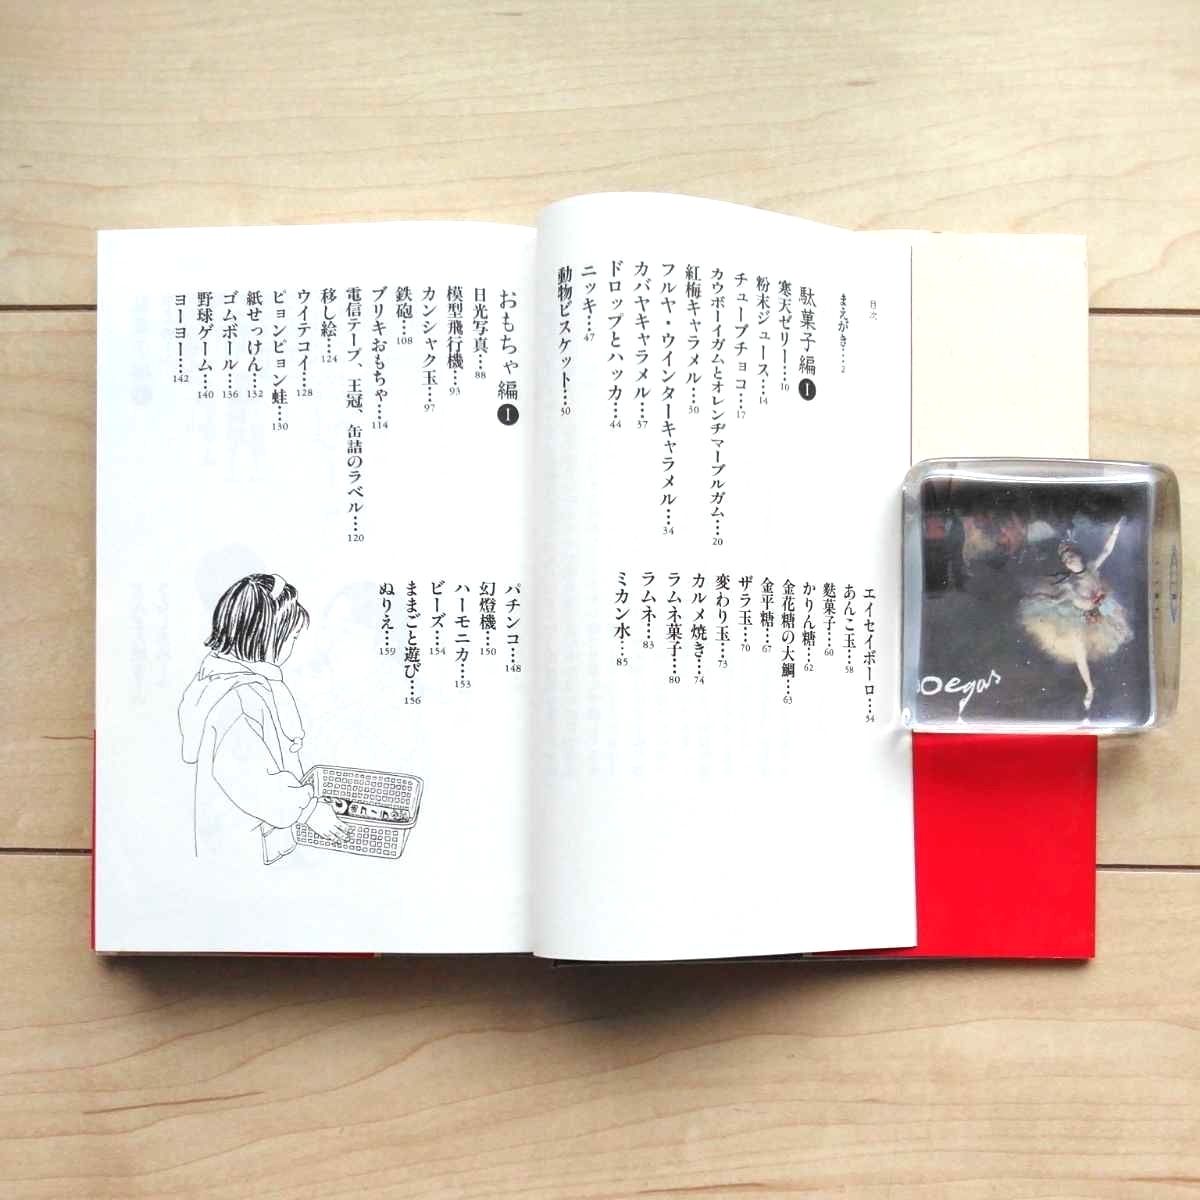 目次
まえがき…2
駄菓子編❶
寒天ゼリー…10
粉末ジュース…14
チューブチョコ…17
カウボーイガムとオレンヂマーブルガム…20
紅梅キャラメル…30
フルヤ・ウインターキャラメル…34
カバヤキャラメル…37
ドロップとハッカ…44
ニッキ…47
動物ビスケット…50
エイセイボーロ…54
あんこ玉…58
麩菓子…60
かりん糖…62
金花糖の大鯛…63
金平糖…67
ザラ玉…70
変わり玉…73
カルメ焼き…74
ラムネ菓子…80
ラムネ…83
ミカン水…85
おもちゃ編❶
日光写真…88
模型飛行機…93
カンシャク玉…97
鉄砲…108
ブリキおもちゃ…114
電信テープ、王冠、缶詰のラベル…120
移し絵…124
ウイテコイ…128
ピョンピョン蛙…130
紙せっけん…132
ゴムボール…136
野球ゲーム…140
ヨーヨー…142
パチンコ…148
幻燈機…150
ハーモニカ…153
ビーズ…154
ままごと遊び…156
ぬりえ…159
Degas